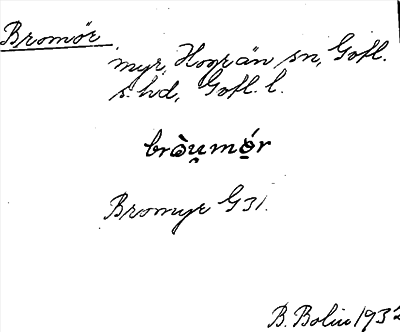 Bromör
myr, Hogrän sn, Gotl.
s. hd, Gotl. l.
bròu̯mǫ́r
Bromyr G31.
B. Bolin 1932